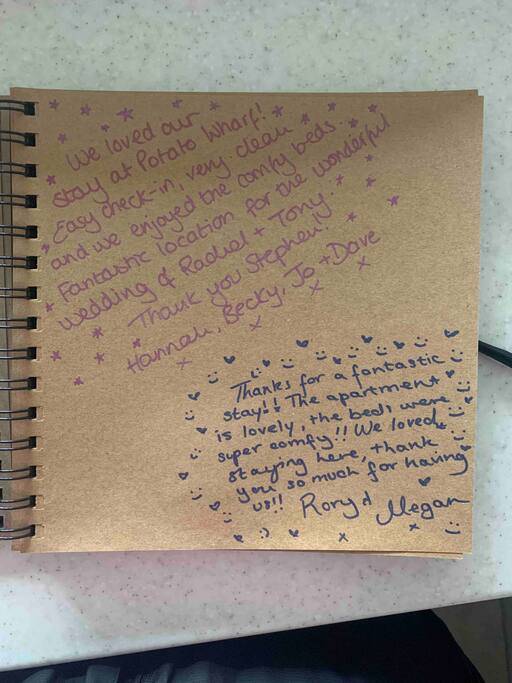 We loved our
stay at Potato Wharf!
Easy check-in, very clean
and we enjoyed the comfy beds.
Fantastic location for the wonderful
wedding of Rachel + Tony.
Thank you Stephen!
Hannah, Becky, Jo + Dave
x x x
Thanks for a fantastic
stay!! The apartment
is lovely, the beds were
super comfy!! We loved
staying here, thank
you so much for having
us!! Rory & Megan
x x